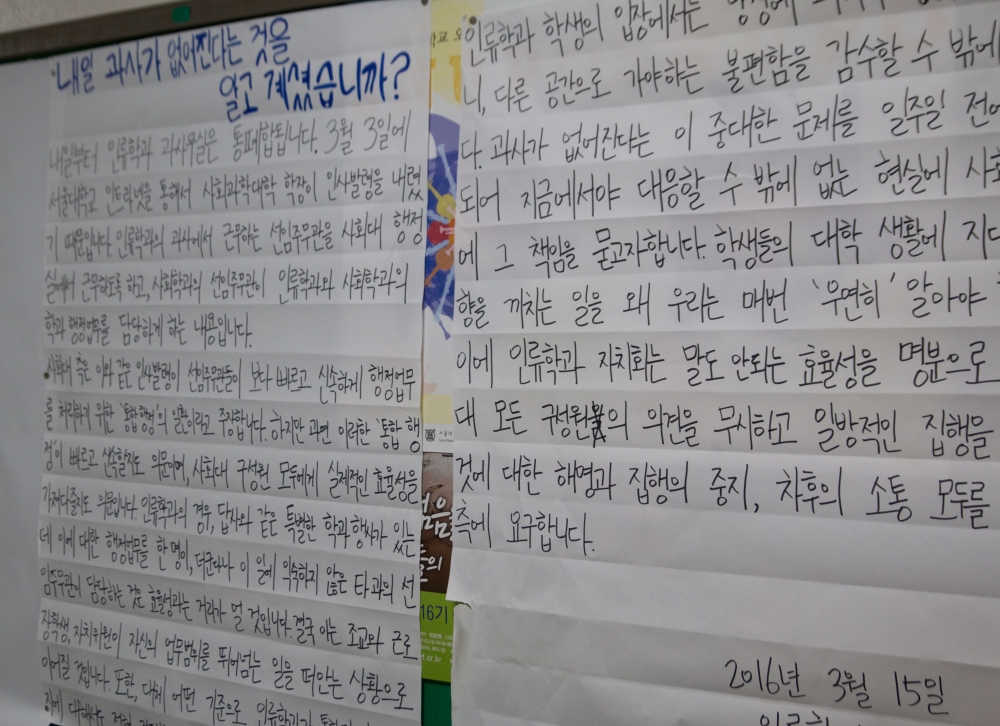 내일 과사가 없어진다는 것을
알고 계셨습니까?
내일부터 인류학과 과사무실은 통폐합됩니다. 3월 3일에
서울대학교 인트라넷을 통해서 사회과학대학 학장이 인사발령을 내렸
기 때문입니다. 인류학과의 과사에서 근무하는 선임주무관을 사회대 행정
실에서 근무하도록 하고, 사회학과의 선임주무관이 인류학과와 사회학과의
학과 행정업무를 담당하게 하는 내용입니다.
사회대 측은 이와 같은 인사발령이 선임주무관들이 보다 빠르고 신속하게 행정업무
를 처리하기 위한 '통합행정'의 일환이라고 주장합니다. 하지만 과연 이러한 '통합 행
정'이 빠르고 신속할지도 의문이며, 사회대 구성원 모두에게 실제적인 효율성을
가져다줄지도 의문입니다. 인류학과의 경우, 답사와 같은 특별한 학과 행사가 있는
데 이에 대한 행정업무를 한 명이, 더군다나 이 일에 익숙하지 않은 타과의 선
임주무관이 담당하는 것은 효율성과는 거리가 멀 것입니다. 결국 이는 조교와 근로
장학생, 자치위원이 자신의 업무범위를 뛰어넘는 일을 떠안는 상황으로
이어질 것입니다. 또한, 대체 어떤 기준으로
인류학과 학생의 입장에서는
니, 다른 공간으로 가야하는 불편함을 감수할 수 밖에
다. 과사가 없어진다는 이 중대한 문제를 일주일 전에
되어 지금에서야 대응할 수 밖에 없는 현실에 사회
에 그 책임을 묻고자합니다. 학생들의 대학 생활에 지대
향을 끼치는 일을 왜 우리는 매번 '우연히' 알아야
이에 인류학과 자치회는 말도 안되는 효율성을 명분으로
대 모든 구성원의 의견을 무시하고 일방적인 집행을
것에 대한 해명과 집행의 중지, 차후의 소통 모두를
측에 요구합니다.
2016년 3월 15일
16기